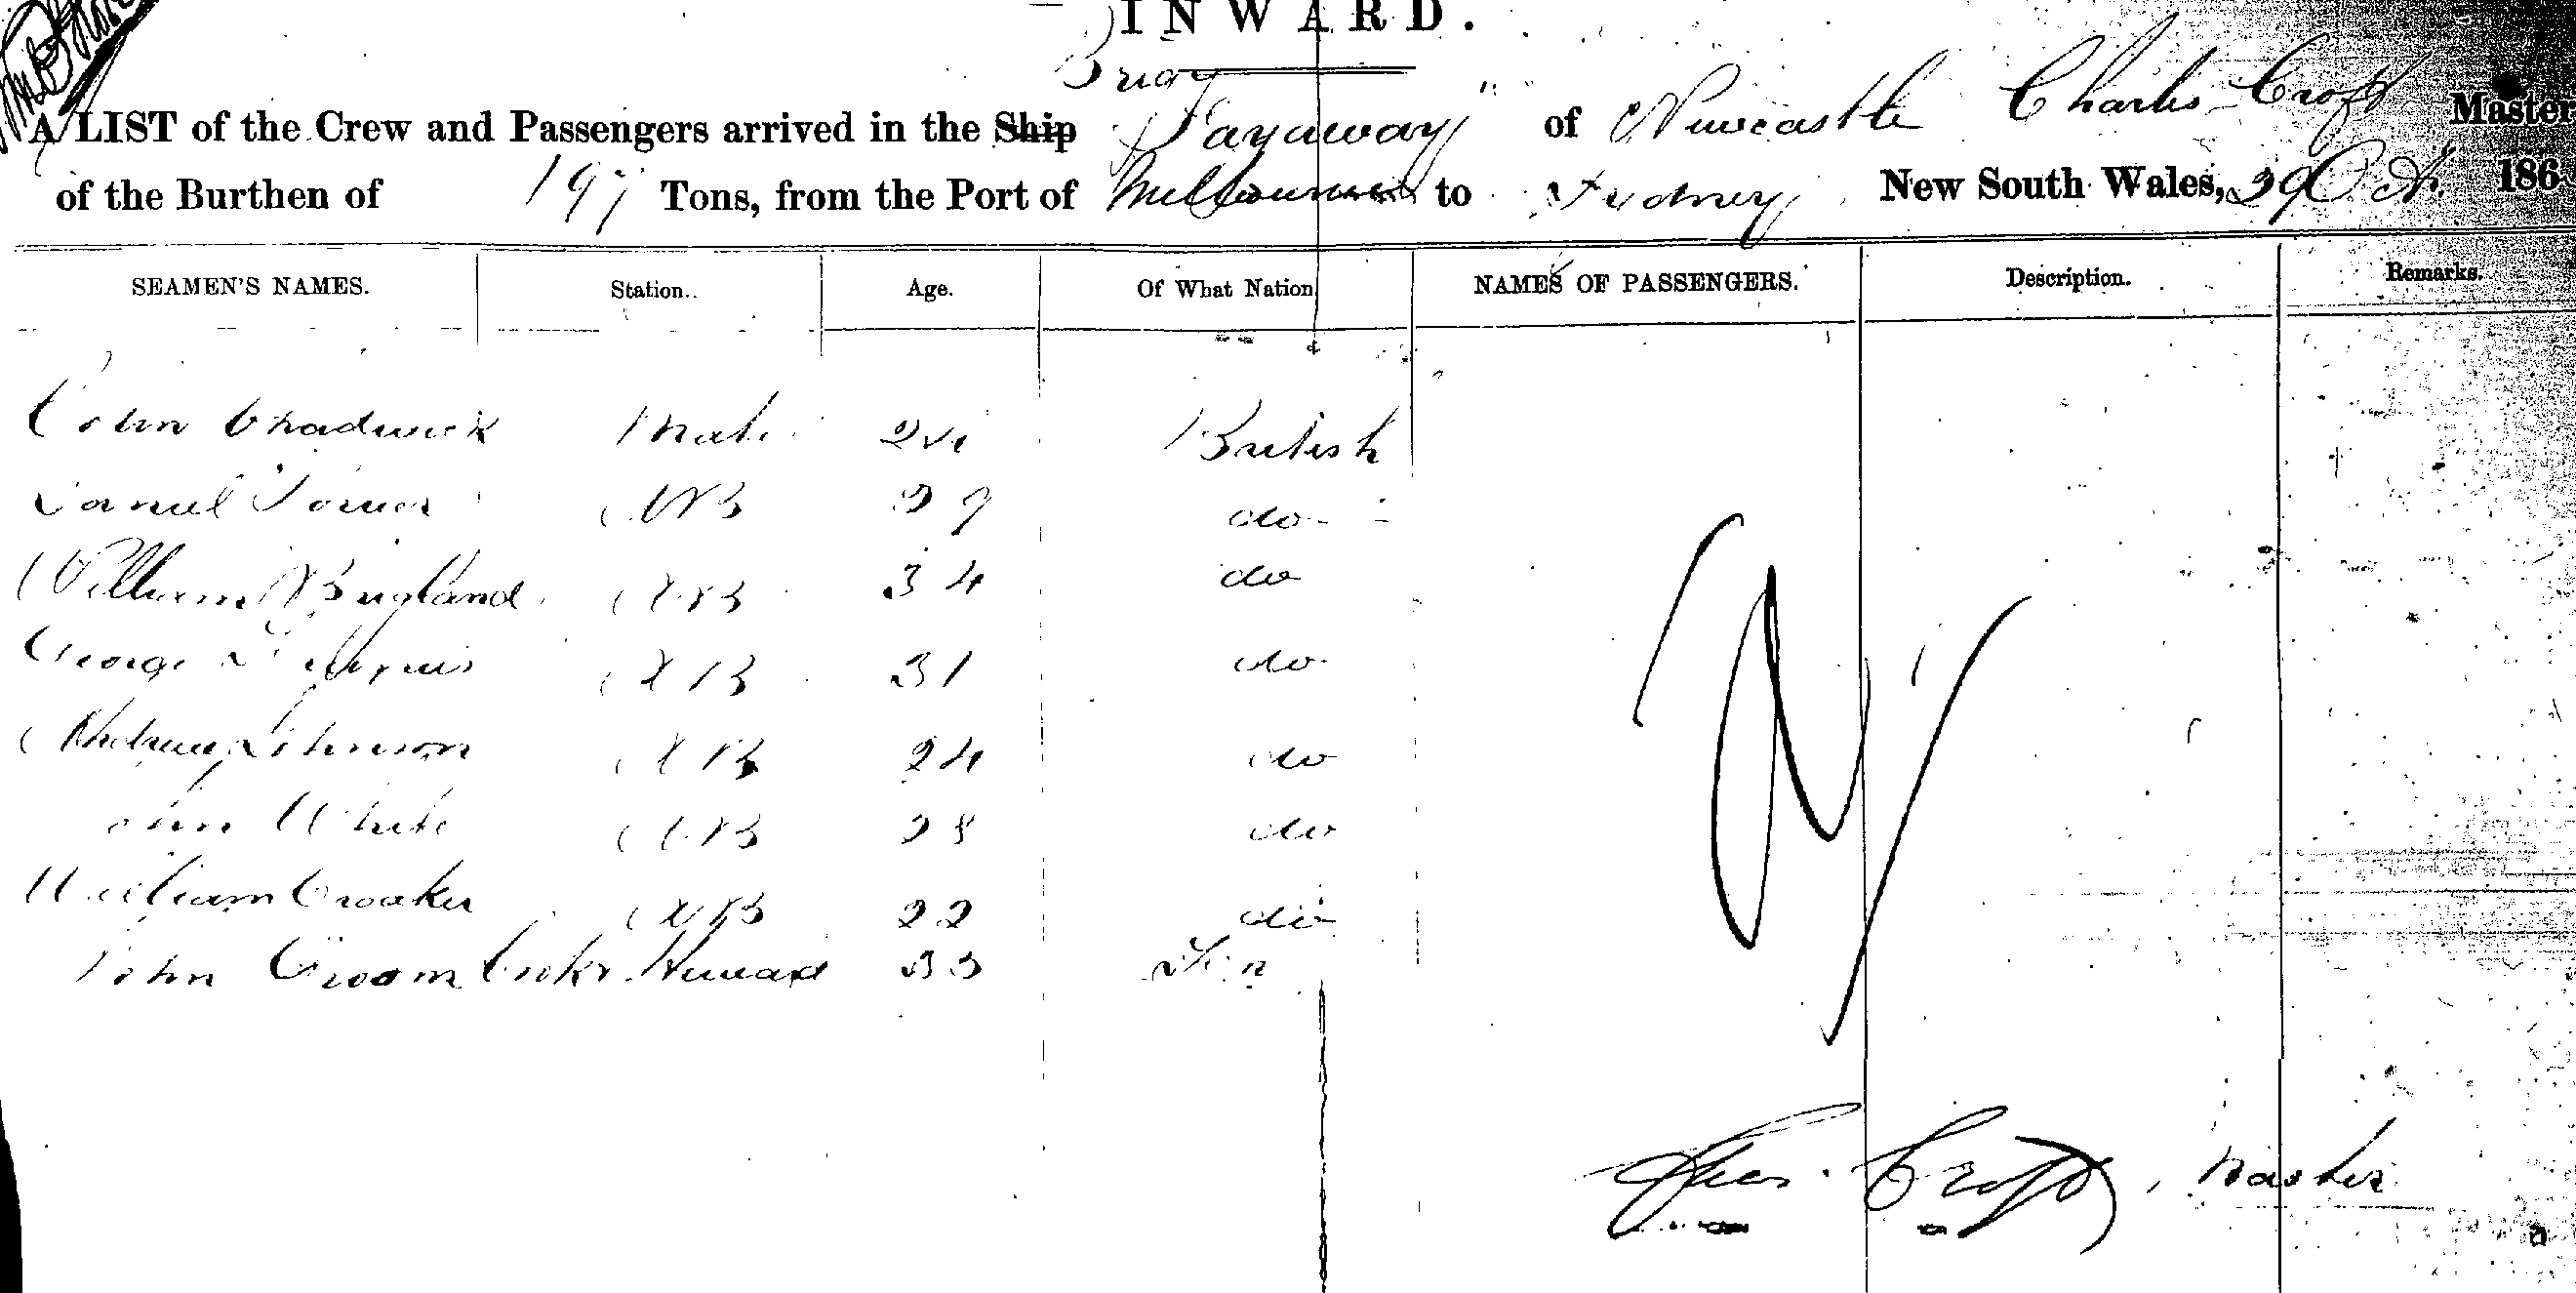 INWARD.
Brig
A LIST of the Crew and Passengers arrived in the Ship "Fayaway" of Newcastle Charles Croft Master
of the Burthen of 197 Tons, from the Port of Melbourne to Sydney New South Wales, 29 Oct 186
SEAMEN'S NAMES. Station. Age. Of What Nation NAMES OF PASSENGERS. Description. Remarks.
John Chadwick Mate British
Daniel AB 39 do
William England AB 34 do
George AB 31 do
Andrew Johnson AB 24 do
John White AB 28 do
William Croaker AB 22 do
John Groom Cook & Steward 33
Chas. Croft, Master